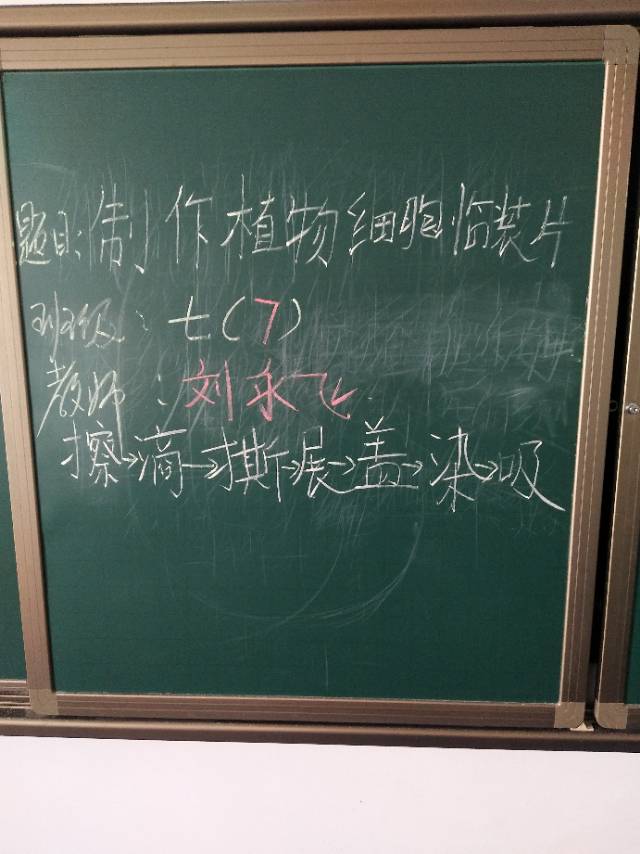 题目:制作植物细胞临装片
班级:七(7)
教师:刘永飞
擦→滴→撕→展→盖→染→吸